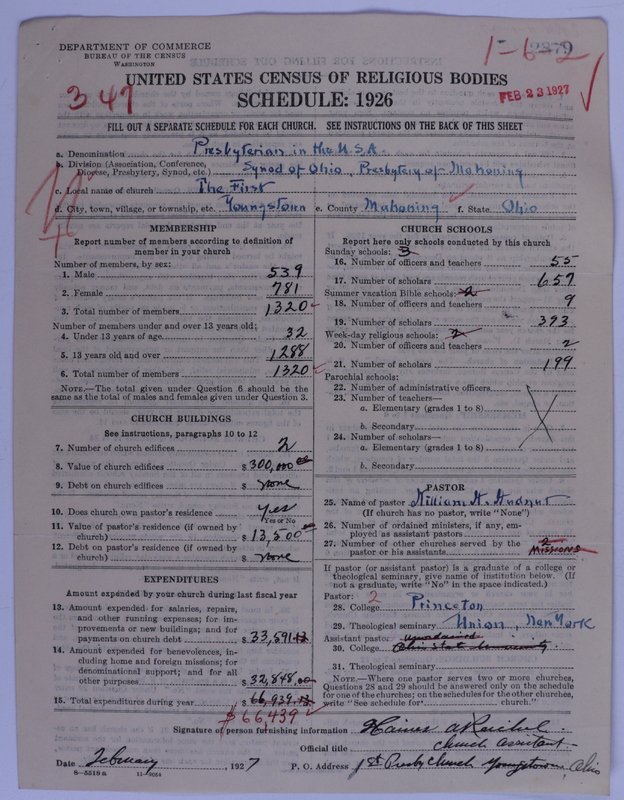 DEPARTMENT OF COMMERCE
BUREAU OF THE CENSUS
WASHINGTON
1-6-2
2379
UNITED STATES CENSUS OF RELIGIOUS BODIES
SCHEDULE: 1926
347
FEB 23 1927
FILL OUT A SEPARATE SCHEDULE FOR EACH CHURCH. SEE INSTRUCTIONS ON THE BACK OF THIS SHEET
a. Denomination Presbyterian in the U.S.A.
b. Division (Association, Conference, Diocese, Presbytery, Synod, etc.) Synod of Ohio, Presbytery of Mahoning
c. Local name of church The First
d. City, town, village, or township, etc. Youngstown e. County Mahoning f. State Ohio
MEMBERSHIP
Report number of members according to definition of
member in your church
Number of members, by sex:
1. Male 539
2. Female 781
3. Total number of members 1320
Number of members under and over 13 years old:
4. Under 13 years of age 32
5. 13 years old and over 1288
6. Total number of members 1320
NOTE.—The total given under Question 6 should be the
same as the total of males and females given under Question 3.
CHURCH BUILDINGS
See instructions, paragraphs 10 to 12
7. Number of church edifices 2
8. Value of church edifices $300,000.00
9. Debt on church edifices $ none
10. Does church own pastor's residence yes
Yes or No
11. Value of pastor's residence (if owned by
church) $13,500.00
12. Debt on pastor's residence (if owned by
church) $ none
EXPENDITURES
Amount expended by your church during last fiscal year
13. Amount expended for salaries, repairs,
and other running expenses; for im-
provements or new buildings; and for
payments on church debt $33,591.12
14. Amount expended for benevolences, in-
cluding home and foreign missions; for
denominational support; and for all
other purposes $32,848.00
15. Total expenditures during year $66,939.12
$66,439
CHURCH SCHOOLS
Report here only schools conducted by this church
Sunday schools: 3
16. Number of officers and teachers 55
17. Number of scholars 657
Summer vacation Bible schools: 2
18. Number of officers and teachers 9
19. Number of scholars 393
Week-day religious schools: 2
20. Number of officers and teachers 2
21. Number of scholars 199
Parochial schools:
22. Number of administrative officers
23. Number of teachers—
a. Elementary (grades 1 to 8)
b. Secondary
24. Number of scholars—
a. Elementary (grades 1 to 8)
b. Secondary
PASTOR
25. Name of pastor William H.
(If church has no pastor, write "None")
26. Number of ordained ministers, if any, em-
ployed as assistant pastors
27. Number of other churches served by the 2
pastor or his assistants Missions
If pastor (or assistant pastor) is a graduate of a college or
theological seminary, give name of institution below. (If
not a graduate, write "No" in the space indicated.)
Pastor: 2
28. College Princeton
29. Theological seminary Union, New York
Assistant pastor: unordained
30. College Ohio State University
31. Theological seminary
NOTE.—Where one pastor serves two or more churches,
Questions 28 and 29 should be answered only on the schedule
for one of the churches; on the schedules for the other churches,
write "See schedule for church."
Signature of person furnishing information Haines A Reichel
Official title Church Assistant
Date February, 1927 P. O. Address 1st Presby Church Youngstown, Ohio
8—5518a 11—9054